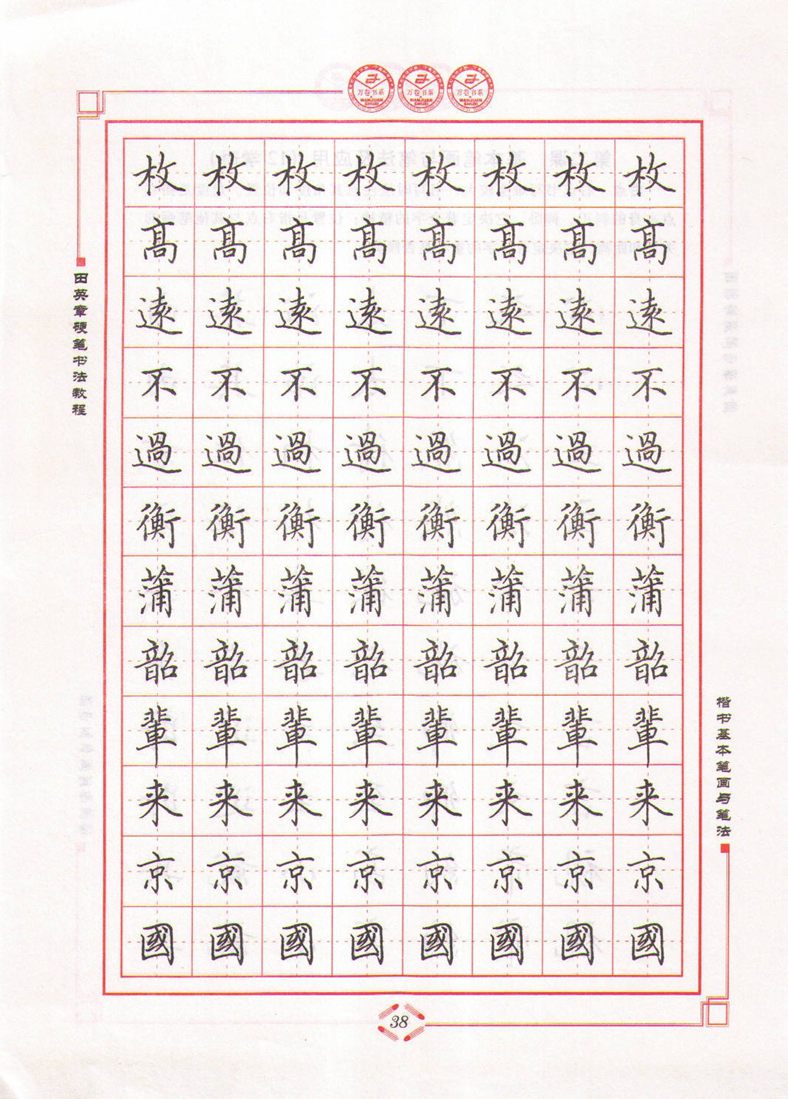 万卷书系 万卷书系 万卷书系
田英章硬笔书法教程
枚枚枚枚枚枚枚枚
髙髙髙髙髙髙髙髙
遠遠遠遠遠遠遠遠
不不不不不不不不
過過過過過過過過
衡衡衡衡衡衡衡衡
蒲蒲蒲蒲蒲蒲蒲蒲
韶韶韶韶韶韶韶韶
輩輩輩輩輩輩輩輩
来来来来来来来来
京京京京京京京京
國國國國國國國國
楷书基本笔画与笔法
38